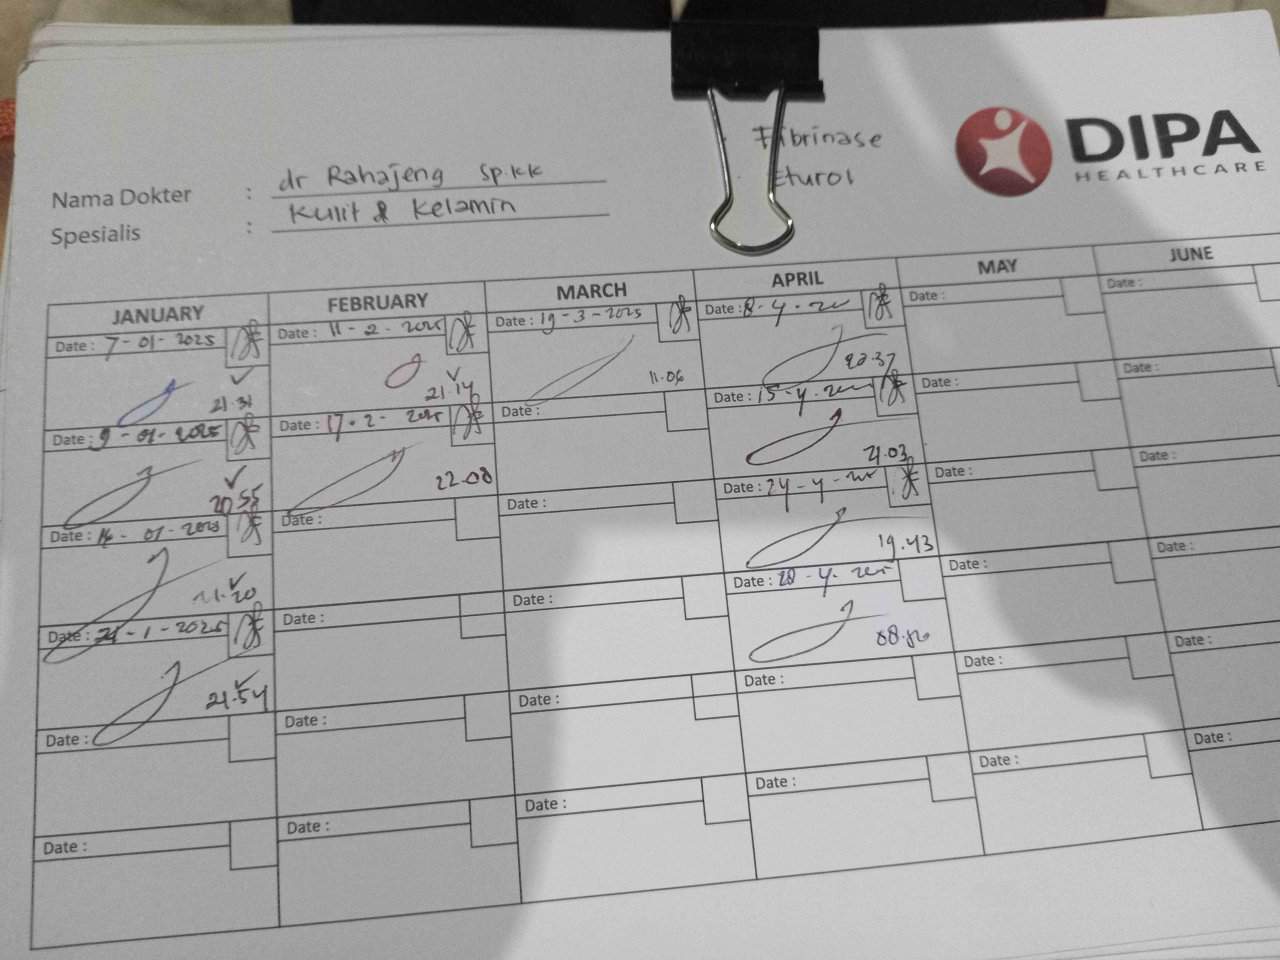 Fibrinase
Eturol
DIPA
HEALTHCARE
Nama Dokter : dr Rahajeng Sp.KK
Spesialis : Kulit & Kelamin
JANUARY FEBRUARY MARCH APRIL MAY JUNE
Date : 7-01-2025 Date : 11-2-2025 Date : 19-3-2025 Date : 8-4- Date : Date :
21.31 21.14 11.06 20.37
Date : 9-01-2025 Date : 17-2-2025 Date : Date : 15-4- Date : Date :
20.55 22.08 21.03
Date : 14-01-2025 Date : Date : Date : 24-4- Date : Date :
21.20 19.43
Date : 21-1-2025 Date : Date : Date : 28-4- Date : Date :
21.54
Date : Date : Date : Date : Date : Date :
Date : Date : Date : Date : Date : Date :